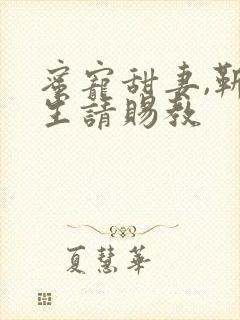 蜜寵甜妻,靳
生請賜教
夏慧華